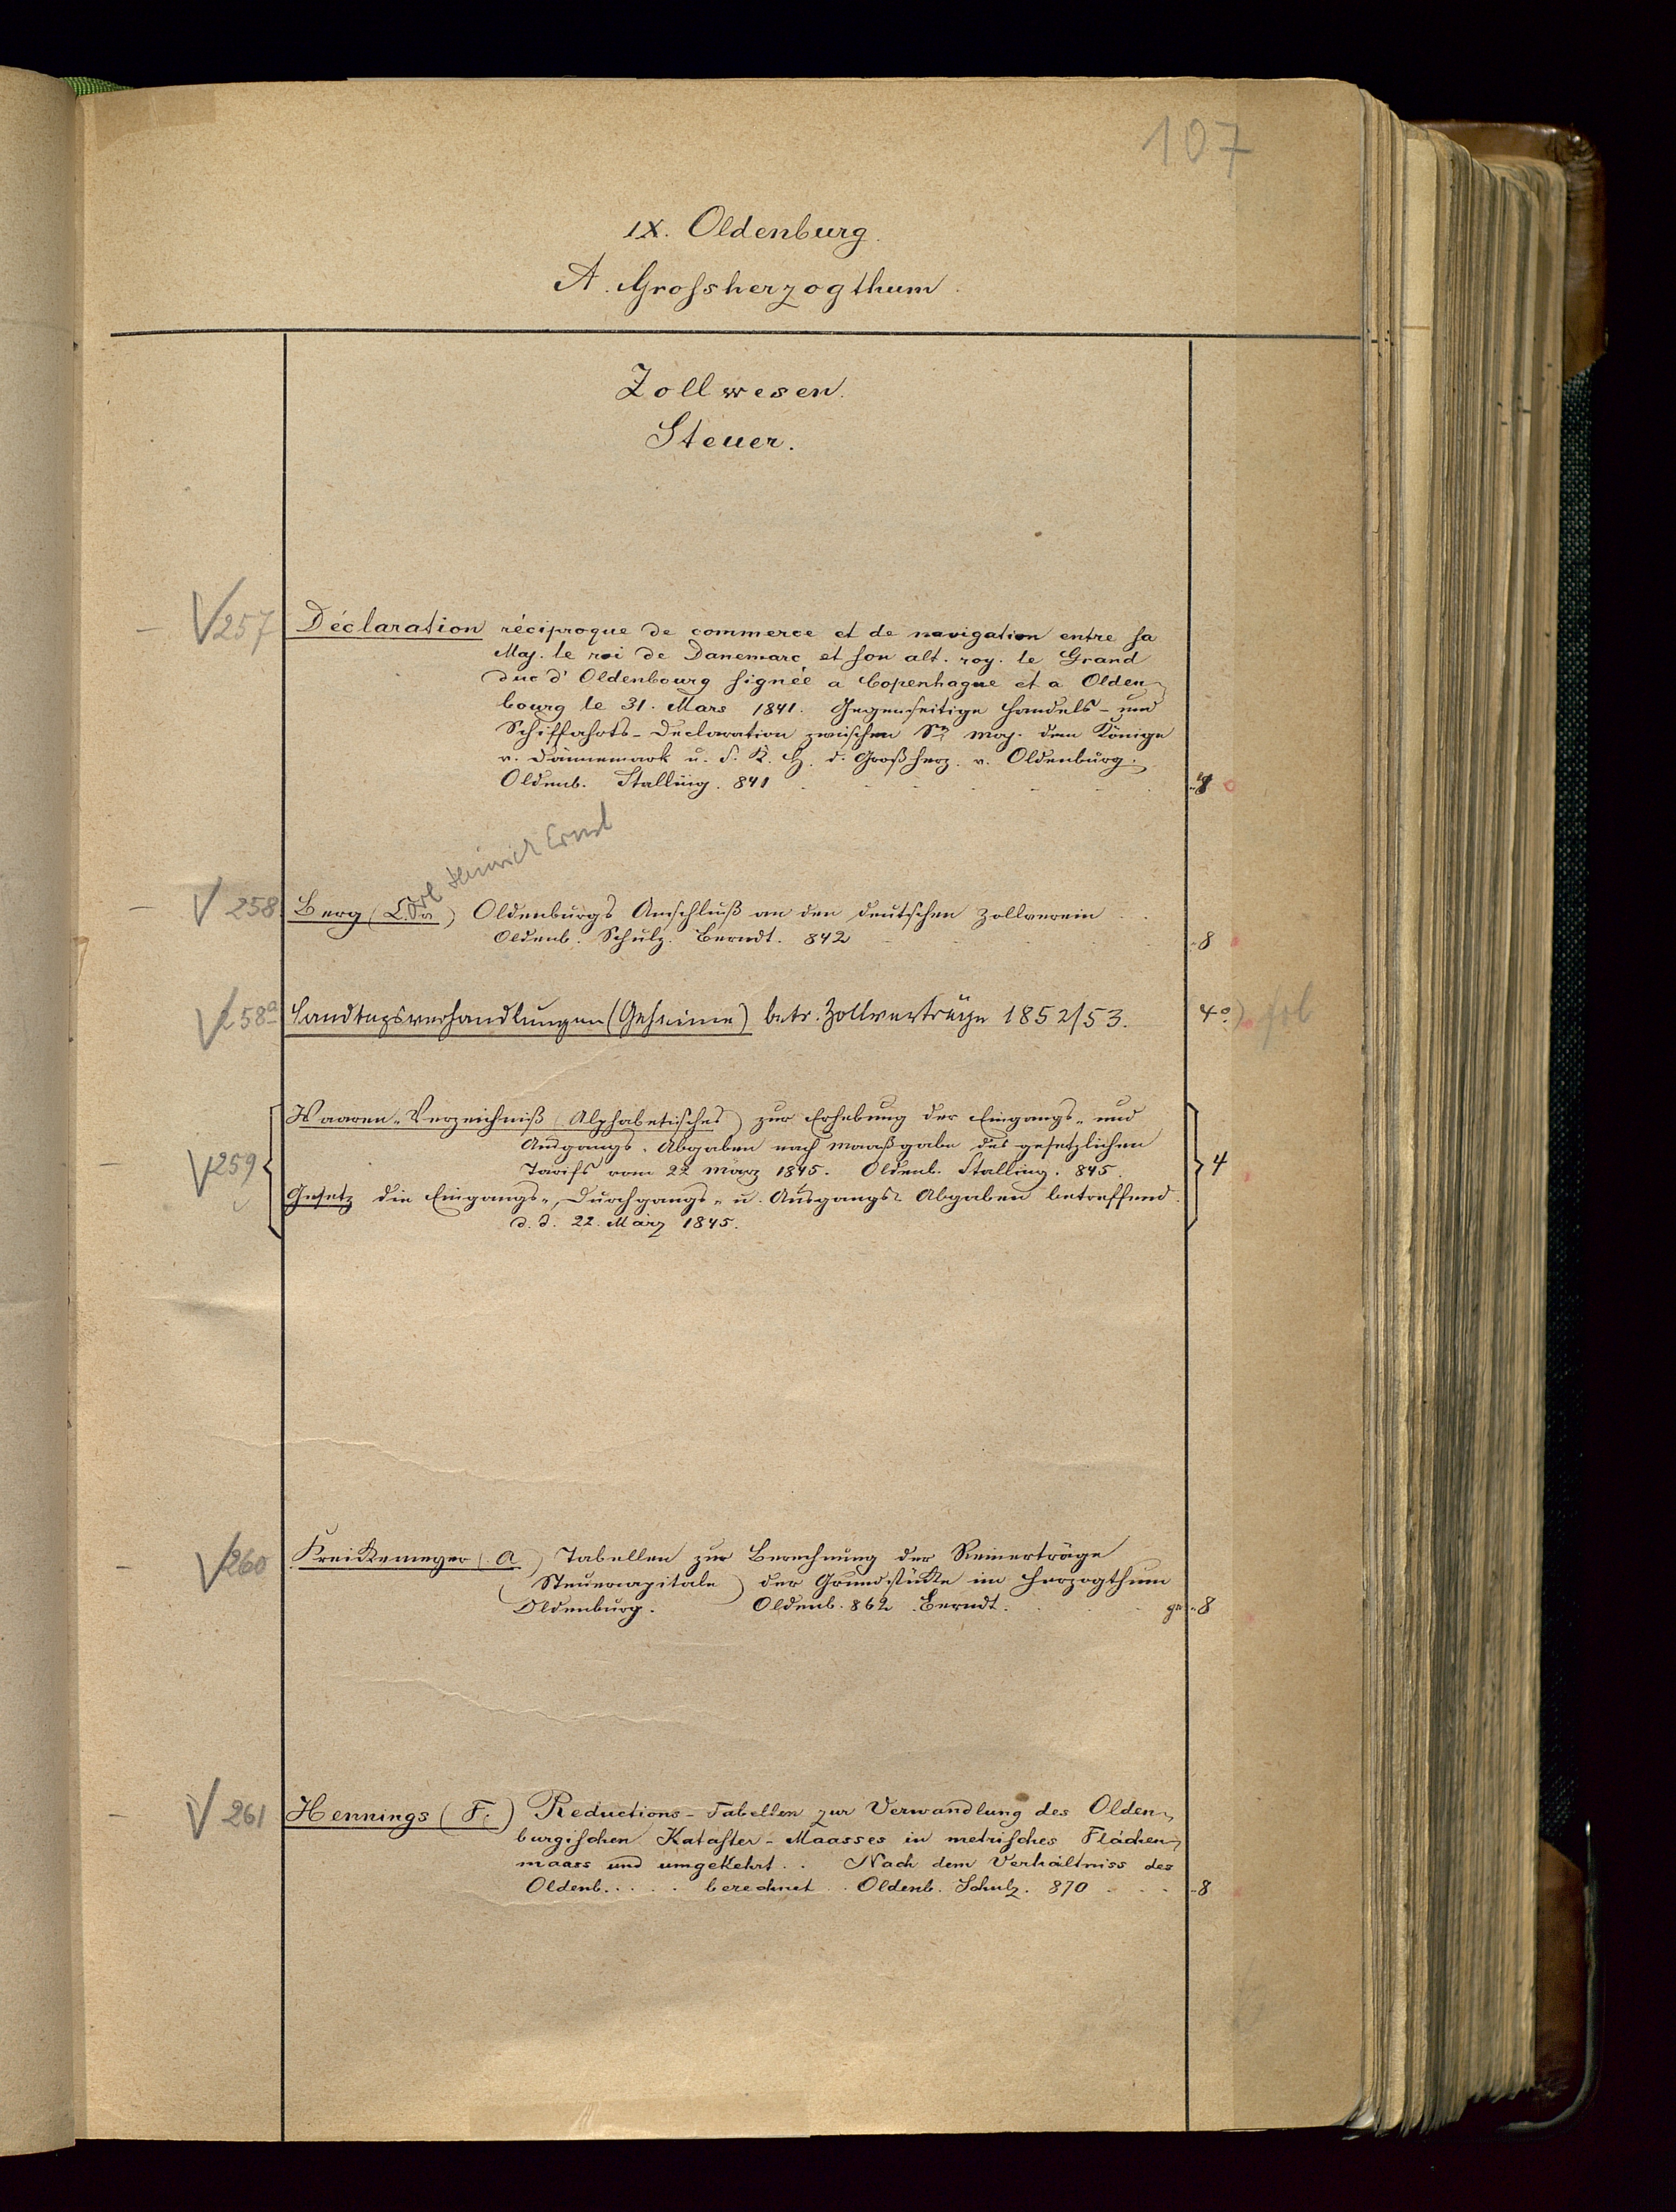 107
IX. Oldenburg.
A. Grossherzogthum.
Zollwesen.
Steuer.
257 Déclaration réciproque de commerce et de navigation entre sa
Maj. le roi de Danemarc et son alt. roy. le Grand
duc d'Oldenbourg signée a Copenhague et a Olden-
bourg le 31. Mars 1841. Gegenseitige Handels- und
Schiffahrts-Declaration zwischen Sr. Maj. dem Könige
v. Dännemark u. S. K. H. d. Großherz. v. Oldenburg.
Oldenb. Stalling. 841
Carl Heinrich Ernst
258 Berg (C. v.) Oldenburgs Anschluß an den deutschen Zollverein
Oldenb. Schulz. Berndt. 842 8
258a Landtagsverhandlungen (Geheime) betr. Zollverträge 1852/53. 4o) fol
Waaren-Verzeichniß (Alphabetisches) zur Erhebung der Eingangs- und
Ausgangs-Abgaben nach Maaßgabe des gesetzlichen
259 Tarifs vom 22 März 1845. Oldenb. Stalling. 845. 4
Gesetz die Eingangs-, Durchgangs- u. Ausgangs-Abgaben betreffend.
d. d. 22. März 1845.
260 Kreikemeyer (A) Tabellen zur Berechnung der Reinerträge
(Steuercapitale) der Grundstücke im Herzogthum
Oldenburg. Oldenb. 862 Berndt. gr. 8
261 Hennings (F.) Reductions-Tabellen zur Verwandlung des Olden-
burgischen Kataster-Maasses in metrisches Flächen-
maass und umgekehrt.. Nach dem Verhältniss des
Oldenb..... berechnet.. Oldenb. Schulz. 870 . . . 8